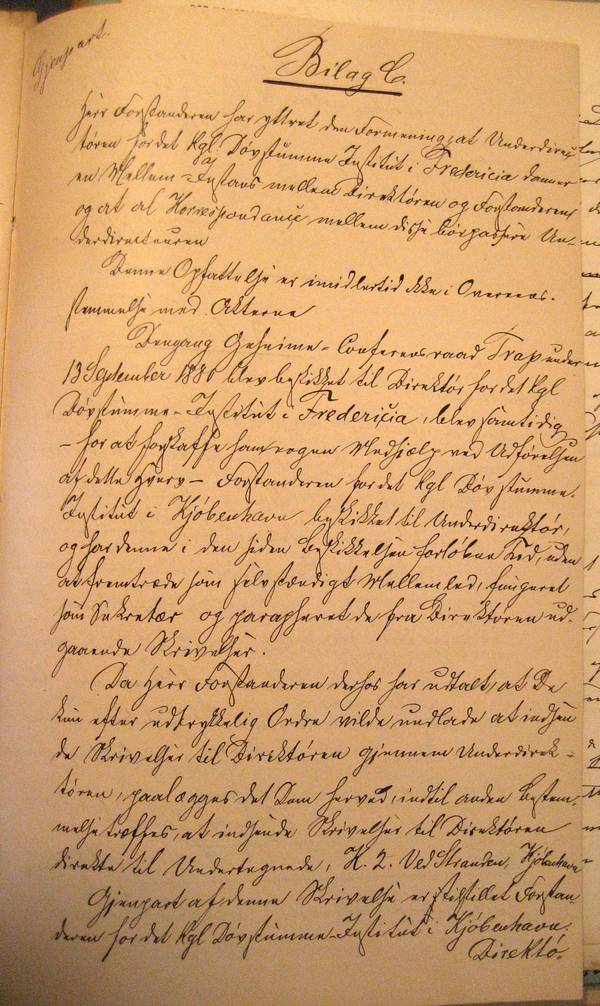 Gjenpart.
Bilag C.
Herr Forstanderen har yttret den Formening, at Underdirek
tøren for det kgl. Døvstumme Institut i Fredericia danner
en Mellem-Instans mellem Direktøren og Forstanderen,
og at al Korrespondance mellem disse bør passere Un-
derdirecteuren
Denne Opfattelse er imidlertid ikke i Overens-
stemmelse med Akterne
Dengang Geheime-Conferensraad Trap under
13 September 1880 blev beskikket til Direktør for det kgl
Døvstumme-Institut i Fredericia, blev samtidig
- for at forskaffe ham nogen Medhjælp ved Udførelsen
af dette Hverv - Forstanderen for det kgl Døvstumme-
Institut i Kjøbenhavn beskikket til Underdirektør,
og har denne i den siden Beskikkelsen forløbne Tid, uden
at fremtræde som selvstændigt Mellemled, fungeret
som Sekretær og parapheret de fra Direktøren ud-
gaaende Skrivelser.
Da Herr Forstanderen derhos har udtalt, at De
kun efter udtrykkelig Ordre vilde undlade at indsen
de Skrivelser til Direktøren gjennem Underdirek-
tøren, paalægges det Dem herved, indtil anden Bestem-
melse træffes, at indsende Skrivelser til Direktøren
direkte til Undertegnede, K. 2. Ved Stranden, Kjøbenhavn
Gjenpart af denne Skrivelse er tilstillet Forstan
deren for det kgl Døvstumme-Institut i Kjøbenhavn.
Direktø.